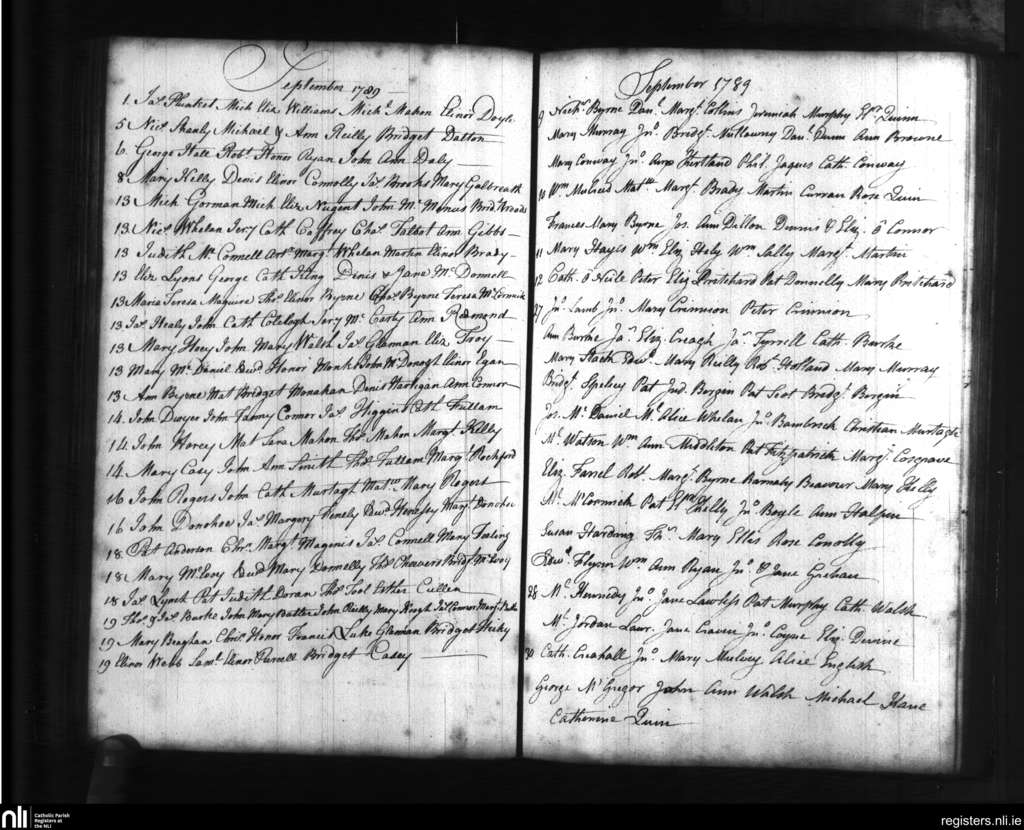 September 1789
1 Jas Plunket Mich Eliz Williams Michl Mahon Elinor Doyle
5 Nics Shanly Michael & Ann Reilly Bridget Dalton
6 George Hall Robt Honor Ryan John Ann Daly
8 Mary Kelly Denis Elinor Connolly Jas Brooks Mary Galbreath
13 Mich Gorman Mich Eliz Nugent John Mc Manus Bridt Woods
13 Nics Whelan Jery Cath Caffrey Chas Talbot Ann Gibbs
13 Judith Mc Connell Margt Whelan Martin Elinor Brady
13 Eliz Lyons George Cath Denis & Jane Mc Donnell
13 Maria Teresa Maguire Thos Elinor Byrne Chas Byrne Teresa McCormick
13 Jas Healy John Cath Jery Mc Carty Ann Redmond
13 Mary Hoey John Mary Welsh Jas Glannan Eliz Troy
13 Mary Mc Daniel Edwd Honor Monk John McDonogh Elinor Egan
13 Ann Byrne Mat Bridget Monahan Denis Hartigan Ann Connor
14 John Dwyer John Fanny Comer Jas Higgins Cath Fullam
14 John Horcy Mat Sara Mahon Thos Mahon Margt Kelly
14 Mary Casy John Ann Smith Thos Fullam Margt Rochford
16 John Rogers John Cath Murtagh Matw Mary Rogers
16 John Donohoe Jas Margery Edwd Hevesey Margt Donohoe
18 Pat Anderson Chrs Margt Magenis Jas Connell Mary
18 Mary McEvoy Edwd Mary Donnelly Thos Cheevers Bridgt McEvoy
18 Jas Lynch Pat Judith Doran Thos Tool Esther Cullen
19 Thos & Jas Burke John Mary Butler John Reilly Mary Keogh Jas Connor Margt
19 Mary Beaghan Chrs Honor Francis & Luke Glannan Bridget Hicky
19 Elinor Webb Saml Elinor Purcell Bridget Casey
September 1789
9 Nichs Byrne Danl Margt Collins Jeremiah Murphy Elr Quinn
Mary Murray Jno Bridgt Nulty Danl Dunn Ann Browne
Mary Conway Jno Ann Kirtland Phil. Jaques Cath. Conway
10 Wm Mulvid Mattw Margt Brady Martin Curran Rose Quin
Frances Mary Byrne Jos. Ann Dillon Dennis & Eliz. ô Connor
11 Mary Hayes Wm Eliz Hely Wm Sally Margt Martin
12 Cath. ô Neile Peter Eliz Pritchard Pat Donnelly Mary Pritchard
27 Jno Lamb Jno Mary Crinnion Peter Crinnion
Ann Burke Jas Eliz. Creagh Jas Tyrrell Cath. Burke
Mary Stack Edwd Mary Reilly Robt Holland Mary Murray
Bridgt Spelecy Pat Jud. Bergin Pat Scot Bridgt Bergin
Jos. Mc Daniel Ml Alice Whelan Jno Bambrick Christian Murtagh
Ml Watson Wm Ann Middleton Pat Fitzpatrick Margt Cosgrave
Eliz. Farrel Robt Margt Byrne Barnaby Beavour Mary Kelly
Ml McCormick Pat Elr Kelly Jno Boyle Ann Halpin
Susan Harding Thos Mary Ellis Rose Conolly
Edwd Flynn Wm Ann Ryan Jno & Jane Graham
28 Ml Kennedy Jno Jane Lawless Pat Murphy Cath. Walsh
Ml Jordan Laur. Jane Craven Jno Coyne Eliz. Devine
30 Cath. Creahall Jno Mary Mulvey Alice English
George McGregor John Ann Walsh Michael Kane
Catherine Quin
nli
Catholic Parish
Registers at
the NLI
registers.nli.ie